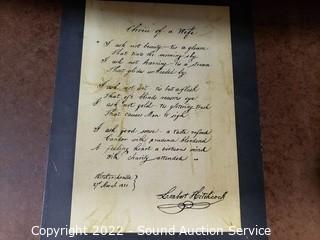 Choice of a Wife
" I ask not beauty tis a gleam
That tints the morning sky
I ask not learning tis a stream
That glides unheeded by
I ask not wit tis but a flash
That oft blinds reasons eye
I ask not gold tis glittering trash
That causes Man to sigh
I ask good sense a taste refined
Candor with prudence blended
A feeling heart a virtuous mind
With charity attended "
27 March 1831
Hitchcock
Copyright © 2022 - Sound Auction Service